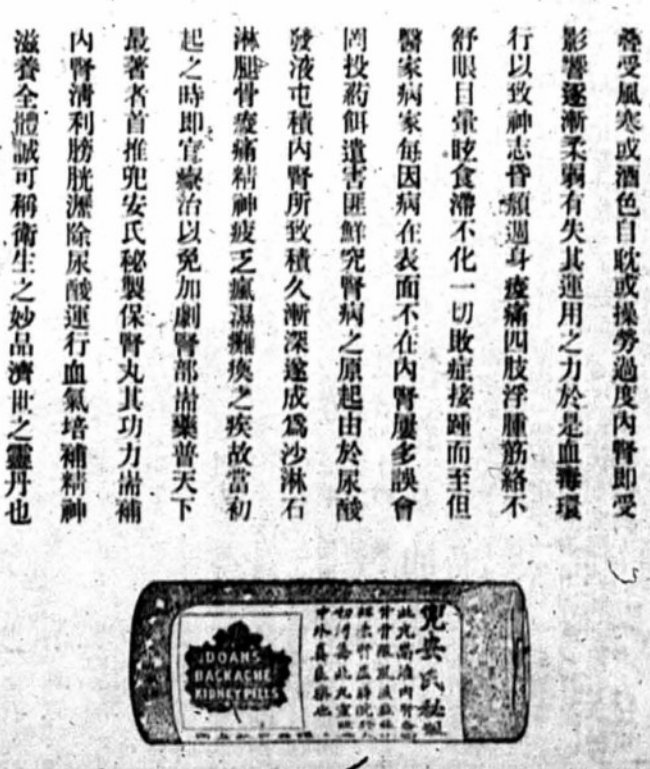 受風寒或酒色自耽或操勞過度內腎即受
影響逐漸柔弱有失其運用之力於是血毒環
行以致神志昏頹週身痠痛四肢浮腫筋絡不
舒眼目暈眩食滯不化一切敗症接踵而至但
醫家病家每因病在表面不在內腎屢多誤會
罔投藥餌遺害匪鮮究腎病之原起由於尿酸
發液屯積內腎所致積久漸深遂成為沙淋石
淋腿骨痠痛精神疲乏瘋濕癱瘓之疾故當初
起之時即宜療治以免加劇腎部耑藥普天下
最著者首推兜安氏秘製保腎丸其功力耑補
內腎清利膀胱瀝除尿酸運行血氣培補精神
滋養全體誠可稱衛生之妙品濟世之靈丹也
兜安氏秘製
中外真良藥也
DOAN'S
BACKACHE
KIDNEY PILLS